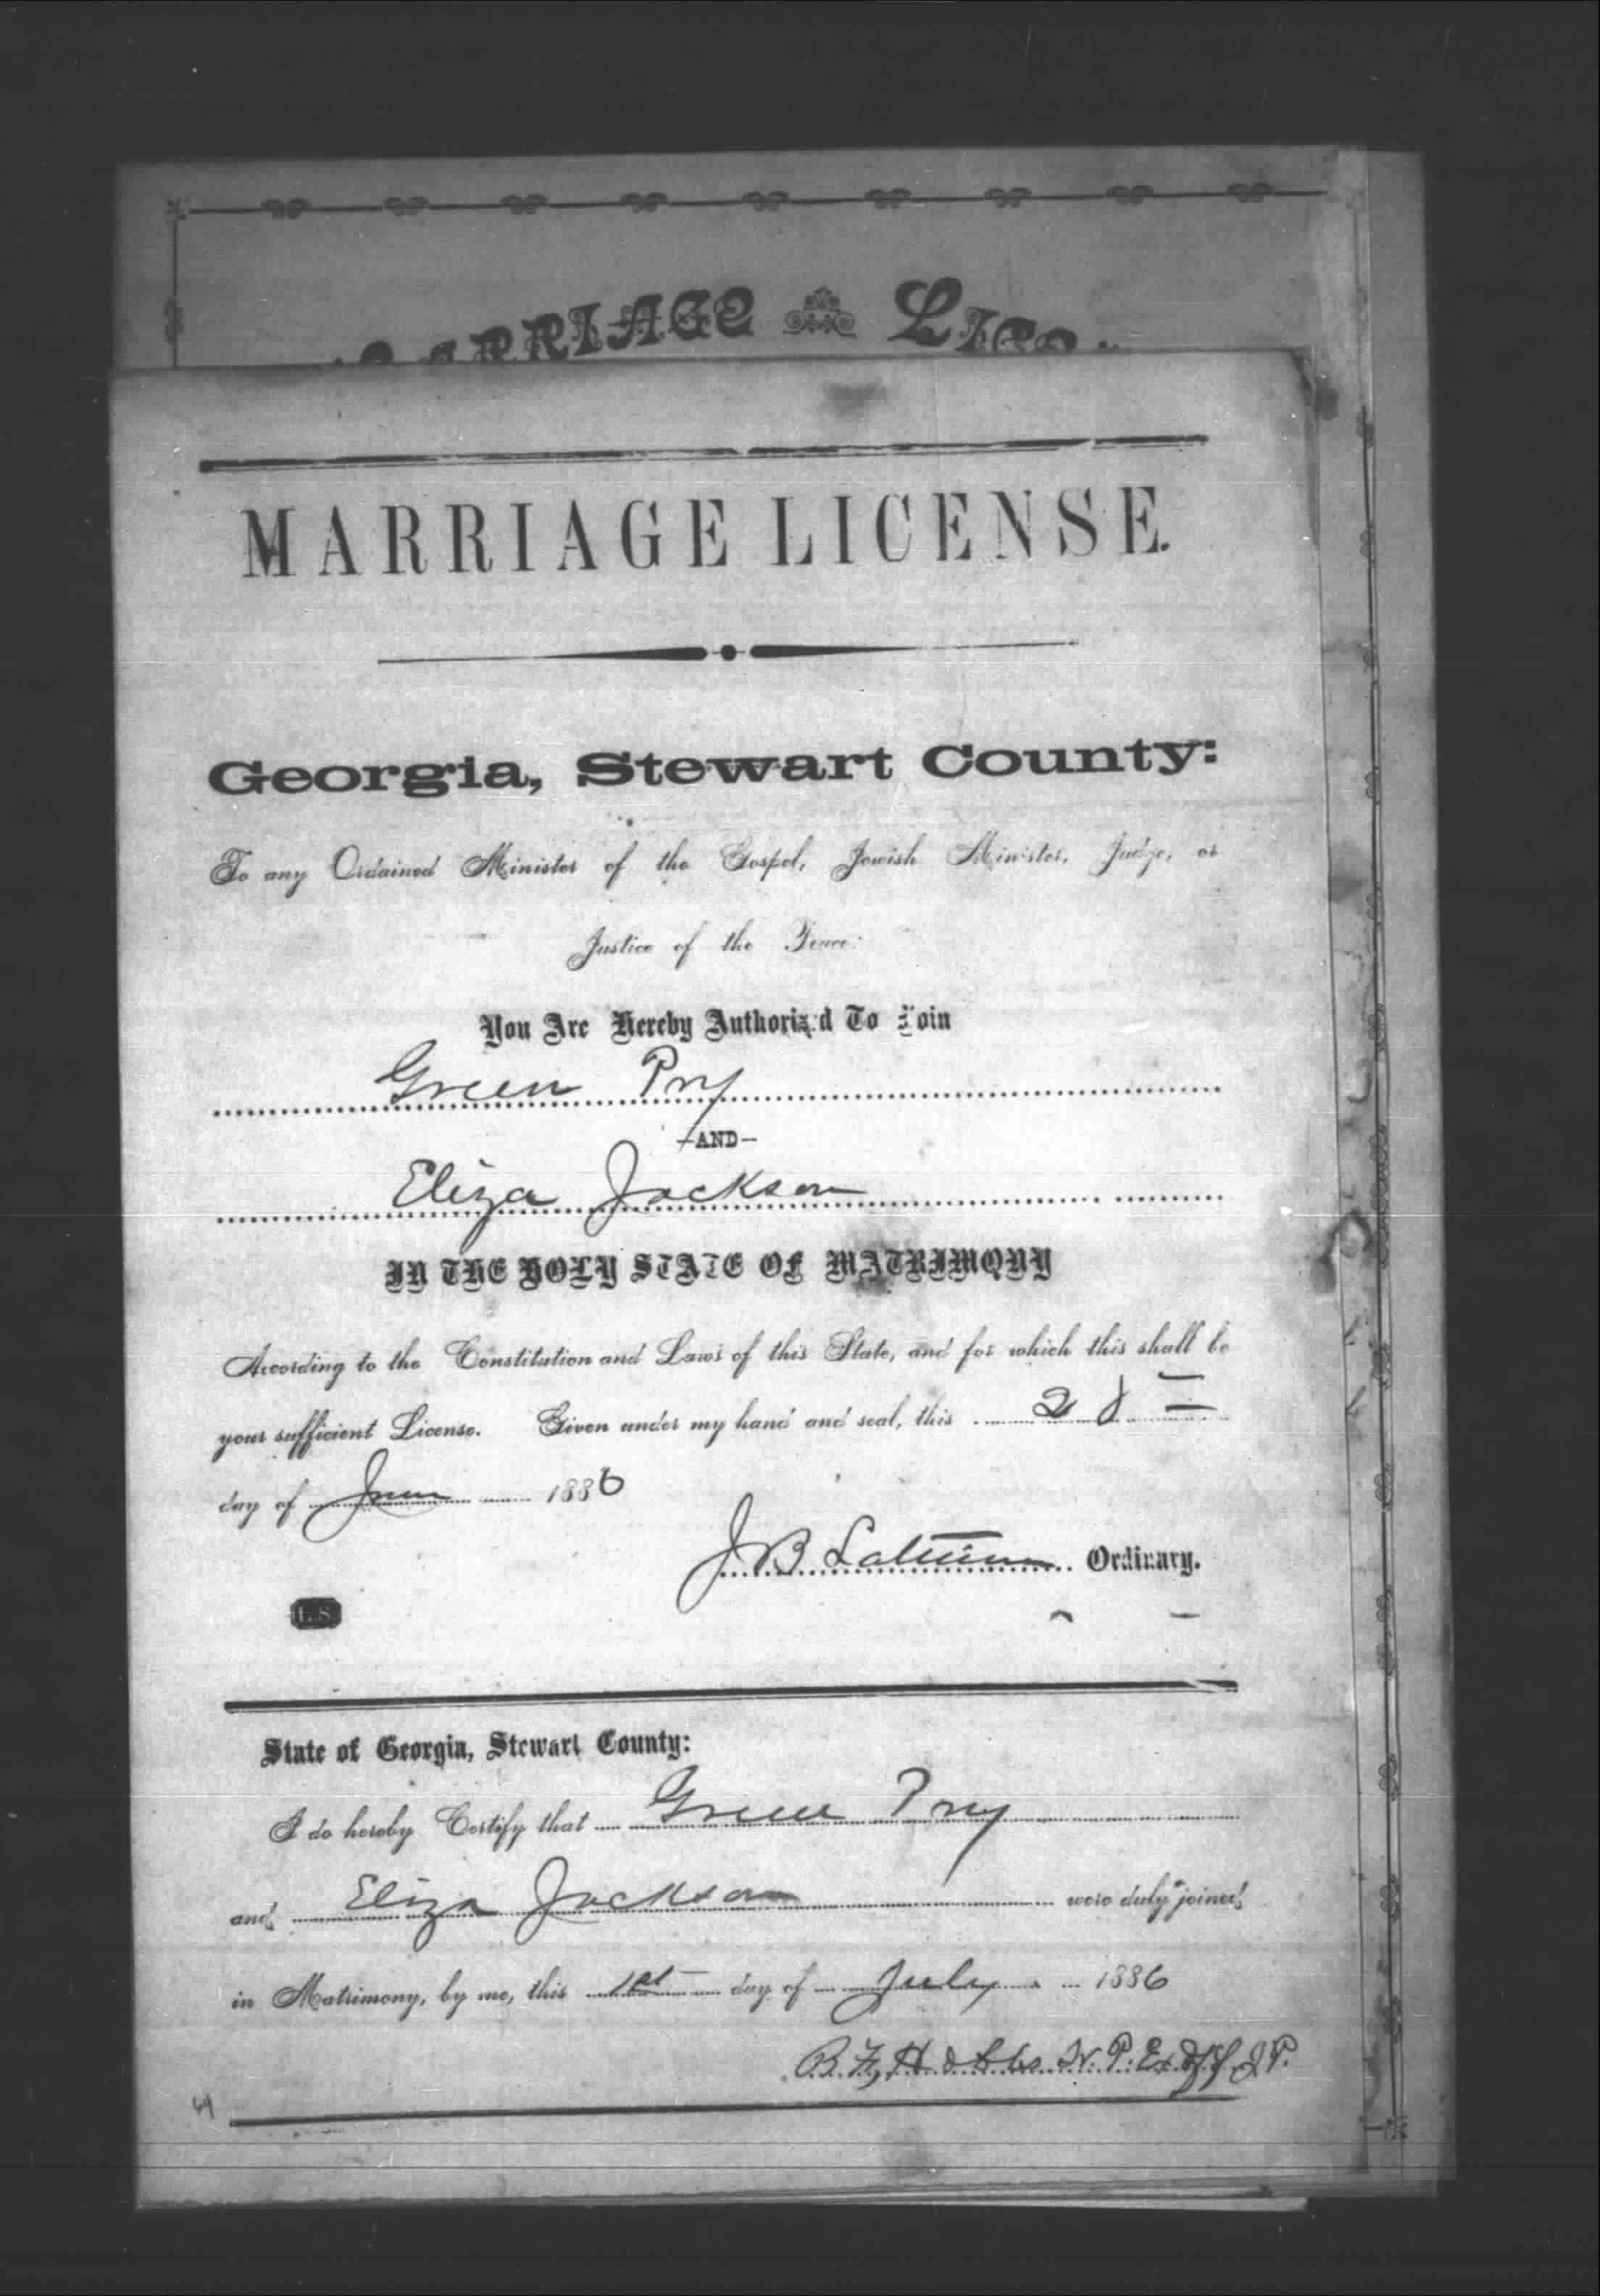 MARRIAGE
MARRIAGE LICENSE.
Georgia, Stewart County:
To any Ordained Minister of the Gospel, Jewish Minister, Judge, or
Justice of the Peace:
You Are Hereby Authoriz'd To Join
Green Pry
-AND-
Eliza Jackson
IN THE HOLY STATE OF MATRIMONY
According to the Constitution and Laws of this State, and for which this shall be
your sufficient License. Given under my hand and seal, this 28
day of June 1886
J B Latimer Ordinary.
L. S.
State of Georgia, Stewart County:
I do hereby Certify that Green Pry
and Eliza Jackson were duly joined
in Matrimony, by me, this 1st day of July 1886
B. F. Hobbs N. P. Ex Off J P.